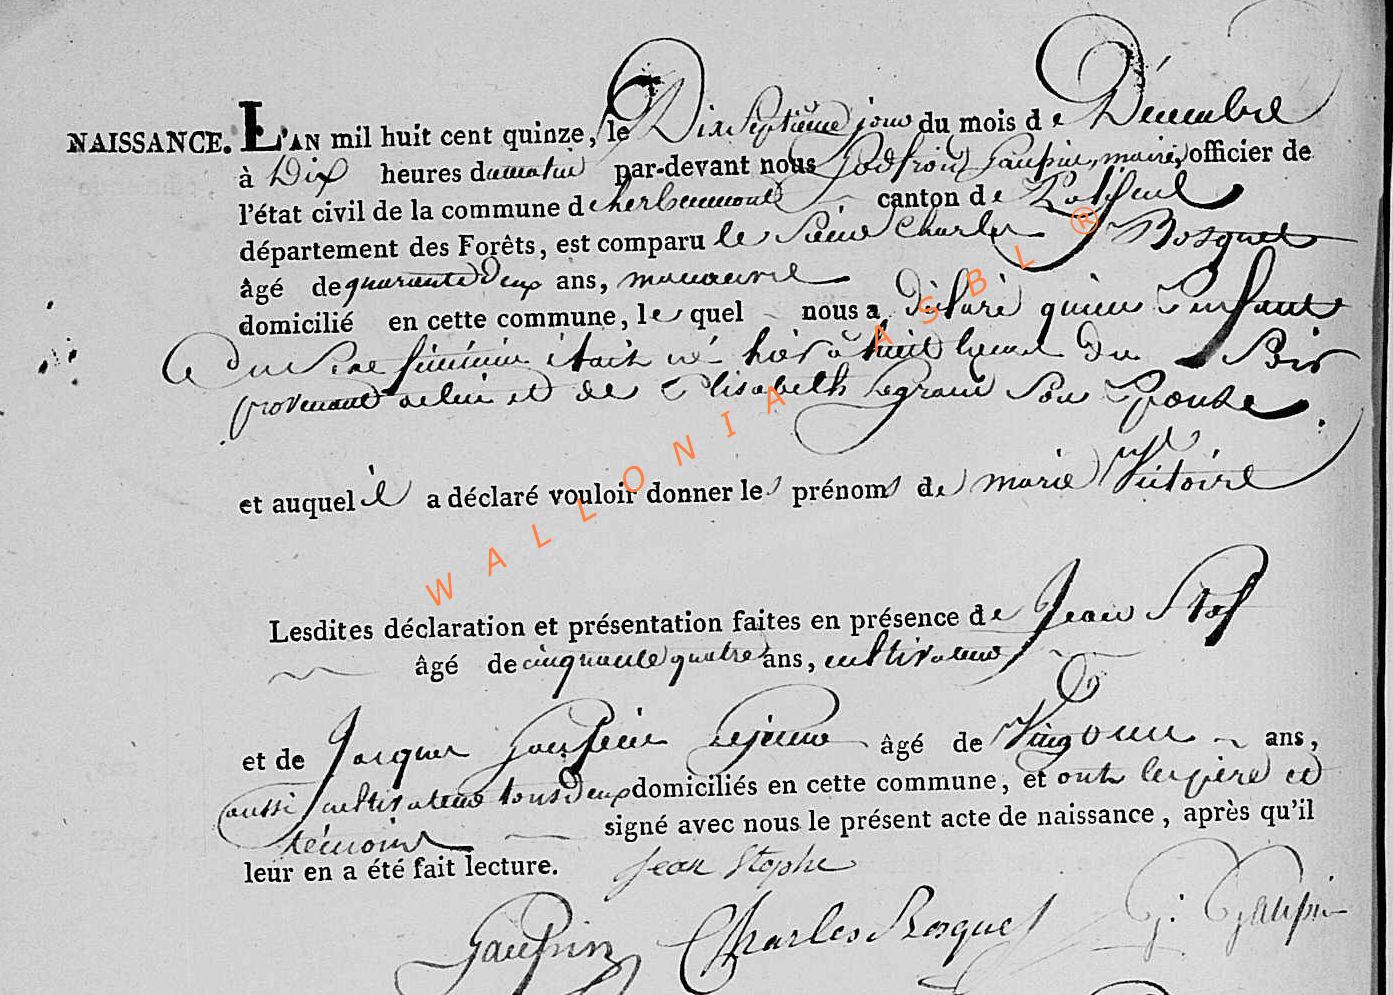 NAISSANCE. L'AN mil huit cent quinze, le Dix Septieme jour du mois de Décembre
à Dix heures du matin par-devant nous Godfroid Gaupin, maire, officier de
l'état civil de la commune de herbeumont canton de
département des Forêts, est comparu le Sieur Charles Bosquet
âgé de quarante deux ans, manouvre
domicilié en cette commune, le quel nous a déclaré qu'un Enfant
du Sexe féminin était né hier à huit heures du Soir
provenant de lui et de Elisabeth Legrand Son Epouse
et auquel il a déclaré vouloir donner les prénoms de marie Victoire
Lesdites déclaration et présentation faites en présence de Jean
âgé de cinquante quatre ans, cultivateur
et de Jacques Gaupin Lejeune âgé de Vingt ans,
aussi cultivateur tous deux domiciliés en cette commune, et ont les père et
témoins signé avec nous le présent acte de naissance, après qu'il
leur en a été fait lecture. Jean Stophe
Gaupin Charles Bosquet G. Gaupin
WALLONIA ASBL ®